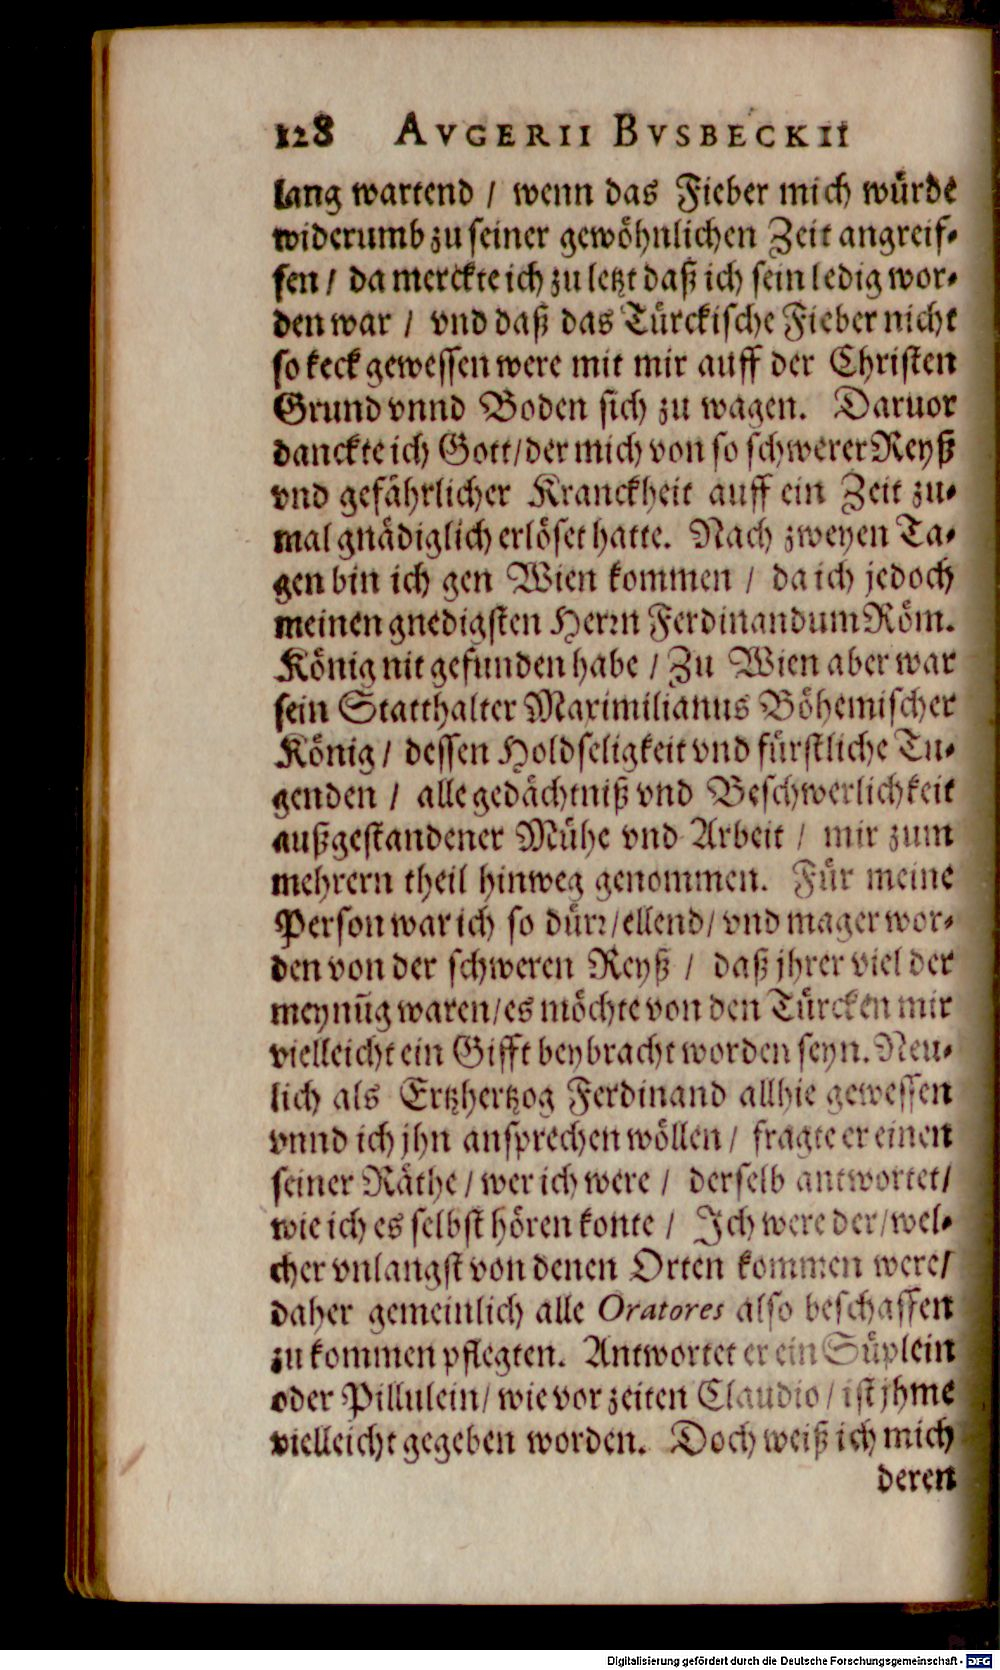 128 AVGERII BVSBECKII
lang wartend / wenn das Fieber mich würde
widerumb zu seiner gewöhnlichen Zeit angreif-
fen / da merckte ich zu letzt daß ich sein ledig wor-
den war / vnd daß das Türckische Fieber nicht
so keck gewessen were mit mir auff der Christen
Grund vnnd Boden sich zu wagen. Daruor
danckte ich Gott / der mich von so schwerer Reyß
vnd gefährlicher Kranckheit auff ein Zeit zu-
mal gnädiglich erlöset hatte. Nach zweyen Ta-
gen bin ich gen Wien kommen / da ich jedoch
meinen gnedigsten Herrn Ferdinandum Röm.
König nit gefunden habe / Zu Wien aber war
sein Statthalter Maximilianus Böhemischer
König / dessen Holdseligkeit vnd fürstliche Tu-
genden / alle gedächtniß vnd Beschwerlichkeit
außgestandener Mühe vnd Arbeit / mir zum
mehrern theil hinweg genommen. Für meine
Person war ich so dürr / ellend / vnd mager wor-
den von der schweren Reyß / daß jhrer viel der
meynũg waren / es möchte von den Türcken mir
vielleicht ein Gifft beybracht worden seyn. Neu-
lich als Ertzhertzog Ferdinand allhie gewessen
vnnd ich jhn ansprechen wöllen / fragte er einen
seiner Räthe / wer ich were / derselb antwortet /
wie ich es selbst hören konte / Ich were der / wel-
cher vnlangst von denen Orten kommen were /
daher gemeinlich alle Oratores also beschaffen
zu kommen pflegten. Antwortet er ein Süplein
oder Pillulein / wie vor zeiten Claudio / ist jhme
vielleicht gegeben worden. Doch weiß ich mich
deren
Digitalisierung gefördert durch die Deutsche Forschungsgemeinschaft - DFG